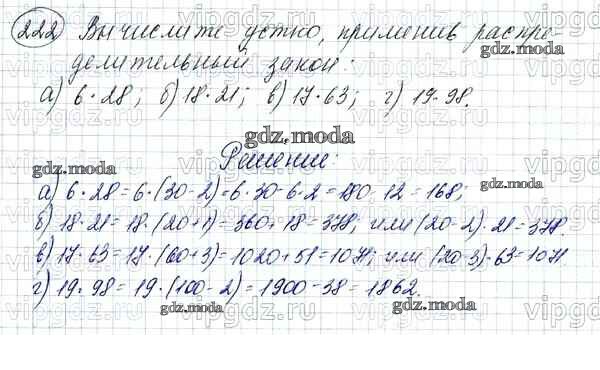 222 Вычислите устно, применив распре-
делительный закон:
а) 6·28; б) 18·21; в) 17·63; г) 19·98.
gdz.moda
Решение:
gdz.moda gdz.moda
а) 6·28 = 6·(30-2) = 6·30-6·2 = 180-12 = 168;
б) 18·21 = 18·(20+1) = 360+18 = 378; или (20-2)·21 = 378.
в) 17·63 = 17·(60+3) = 1020+51 = 1071; или (20-3)·63 = 1071
г) 19·98 = 19·(100-2) = 1900-38 = 1862.
gdz.moda gdz.moda